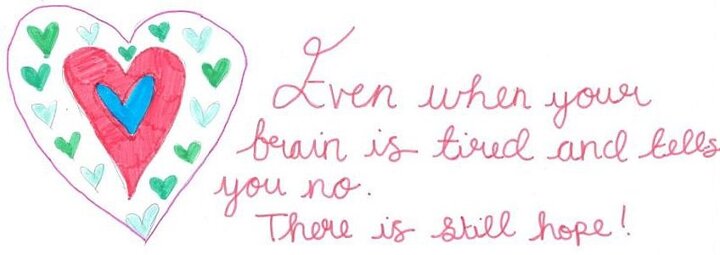 Even when your
brain is tired and tells
you no.
There is still hope!